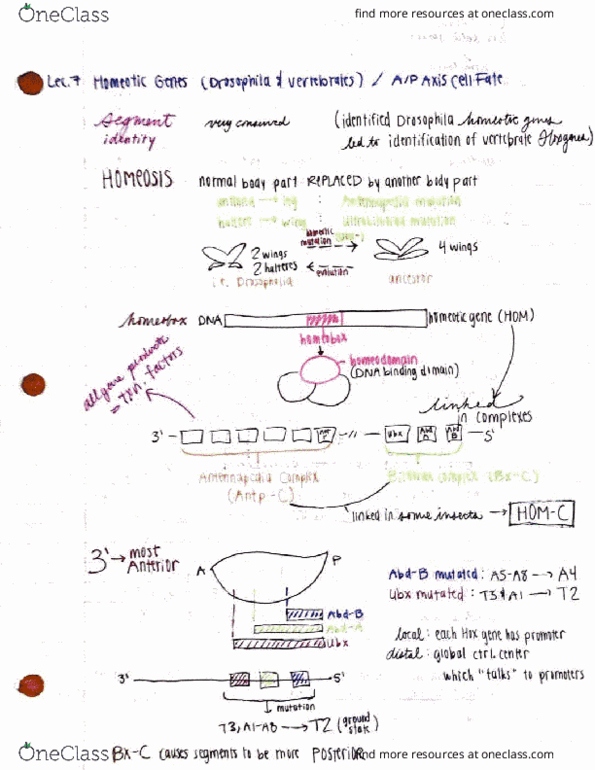 OneClass
find more resources at oneclass.com
Lec. 7 Homeotic Genes (Drosophila & vertebrates) / A/P Axis Cell Fate
Segment identity
very conserved
(identified Drosophila homeotic genes
led to identification of vertebrate Hox genes)
HOMEOSIS normal body part REPLACED by another body part
antenna → leg : Antennapedia mutation
haltere → wing : Ultrabithorax mutation
homeotic mutation (Ubx-)
2 wings
2 halteres
4 wings
evolution
i.e. Drosophila
ancestor
homeobox DNA
homeotic gene (HOM)
homeobox
homeodomain
(DNA binding domain)
all gene products
= txn. factors
linked
in complexes
3'
Ubx
Abd A
Abd B
5'
Antennapedia Complex
(Antp-C)
Bithorax complex (Bx-C)
linked in some insects → HOM-C
3' → most Anterior
A
P
Abd-B
Abd-A
Ubx
Abd-B mutated : A5-A8 → A4
Ubx mutated : T3 & A1 → T2
local : each Hox gene has promoter
distal : global ctrl. center
which "talks" to promoters
3'
5'
mutation
T3, A1-A8 → T2 (ground state)
Bx-C causes segments to be more POSTERIOR
OneClass
find more resources at oneclass.com